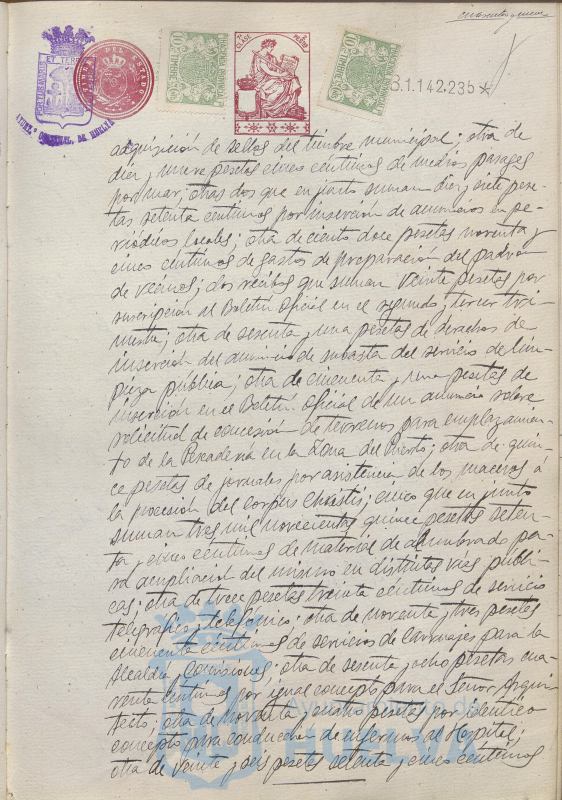 cuarenta y nueve
PORTUS MARIS ET TERRE
AYUNT.º CONSTNAL. DE HUELVA
TIMBRE DEL ESTADO
10 CTS TIMBRE
CLASE
10 CTS TIMBRE
B.1.142.235*
adquisición de sellos del timbre municipal; otra de
diez y nueve pesetas cinco céntimos de medios pasages
por mar; otras dos que en junto suman diez y siete pese-
tas setenta céntimos por inserción de anuncios en pe-
riódicos locales; otra de ciento doce pesetas noventa y
cinco céntimos de gastos de preparación del padrón
de vecinos; dos recibos que suman veinte pesetas por
suscripción al Boletín Oficial en el segundo y tercer tri-
mestre; otra de sesenta y una pesetas de derechos de
inserción del anuncio de subasta del servicio de lim-
pieza pública; otra de cincuenta y una pesetas de
inserción en el Boletín Oficial de un anuncio sobre
solicitud de concesión de terrenos para emplazamien-
to de la Pescadería en la Zona del Puerto; otra de quin-
ce pesetas de jornales por asistencia de los maceros á
la procesión del Corpus Christi; cinco que en junto
suman tres mil novecientas quince pesetas seten-
ta y cinco céntimos de material de alumbrado pa-
ra ampliación del mismo en distintas vías públi-
cas; otra de trece pesetas treinta céntimos de servicio
telegráfico y telefónico; otra de noventa y tres pesetas
cincuenta céntimos de servicios de carruajes para la
Alcaldía y Comisiones; otra de sesenta y ocho pesetas cua-
renta céntimos por igual concepto para el Señor Arqui-
tecto; otra de noventa y cuatro pesetas por idéntico
concepto para conducción de enfermos al Hospital;
otra de veinte y seis pesetas setenta y cinco céntimos
Ayuntamiento de
HUELVA